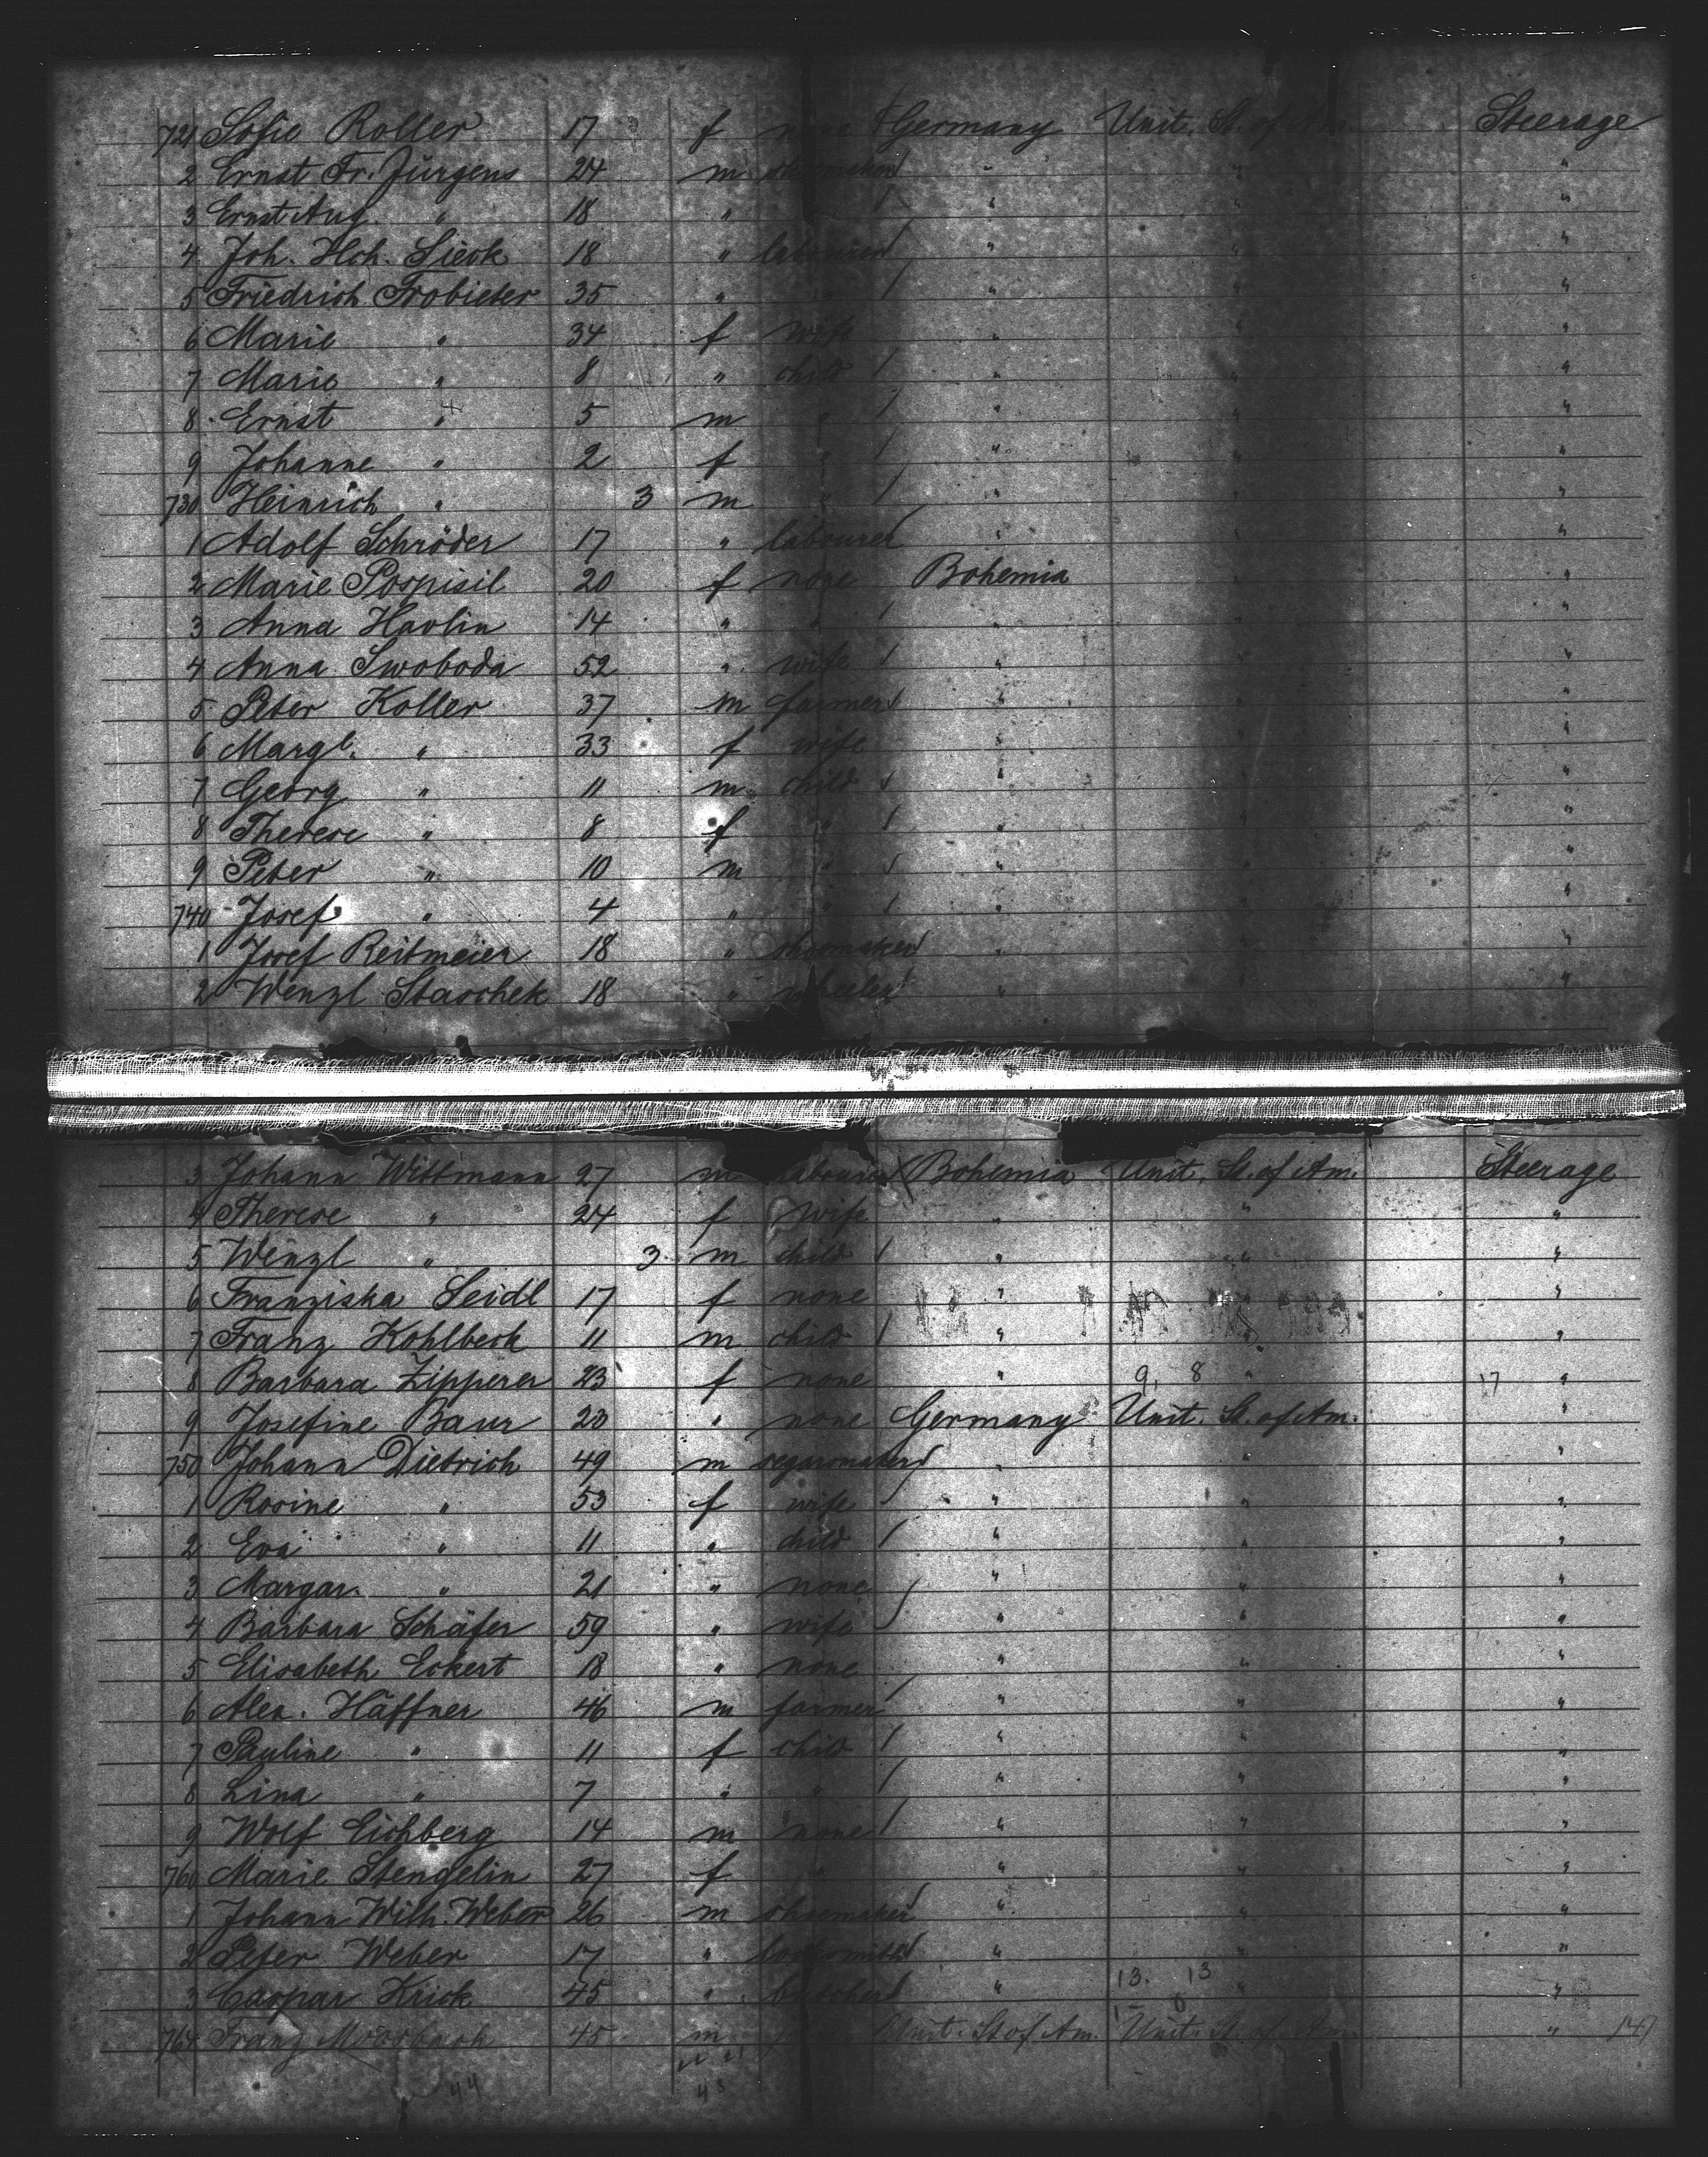 721 Sofie Roller 17 f none Germany Unit. St. of Am. Steerage
2 Ernst Fr. Jürgens 24 m shoemaker " " "
3 Ernst Aug. " 18 " " " "
4 Joh. Hch. Sieck 18 " labourer " " "
5 Friedrich Frobieter 35 " " " " "
6 Marie " 34 f wife " " "
7 Marie " 8 " child " " "
8 Ernst " 5 m " " " "
9 Johanne " 2 f " " " "
730 Heinrich " 3 m " " " "
1 Adolf Schröder 17 " labourer " " "
2 Marie Pospisil 20 f none Bohemia " "
3 Anna Havlin 14 " " " " "
4 Anna Swoboda 52 " wife " " "
5 Peter Koller 37 m farmer " " "
6 Margt. " 33 f wife " " "
7 Georg " 11 m child " " "
8 Therese " 8 f " " " "
9 Peter " 10 m " " " "
740 Josef " 4 " " " " "
1 Josef Reitmeier 18 " shoemaker " " "
2 Wenzl Staschek 18 " wheeler " " "
3 Johann Wittmann 27 m labourer Bohemia Unit. St. of Am. Steerage
4 Therese " 24 f wife " " "
5 Wenzl " 3 m child " " "
6 Franziska Seidl 17 f none " " "
7 Franz Kohlbeck 11 m child " " "
8 Barbara Zipperer 23 f none " 9, 8 " 17 "
9 Josefine Baur 23 " none Germany Unit. St. of Am. "
750 Johann Dietrich 49 m segarmaker " " "
1 Rosine " 53 f wife " " "
2 Eva " 11 " child " " "
3 Margar. " 21 " none " " "
4 Barbara Schäfer 59 " wife " " "
5 Elisabeth Eckert 18 " none " " "
6 Alex. Häffner 46 m farmer " " "
7 Pauline " 11 f child " " "
8 Lina " 7 " " " " "
9 Wolf Eichberg 14 m none " " "
760 Marie Stengelin 27 f " " " "
1 Johann Wilh. Weber 26 m shoemaker " " "
2 Peter Weber 17 " locksmith " " "
3 Caspar Krick 45 " butcher " 13. 13 " "
764 Franz Moosbach 45 m Unit. St. of Am. Unit. St. of Am. " 147
44 43